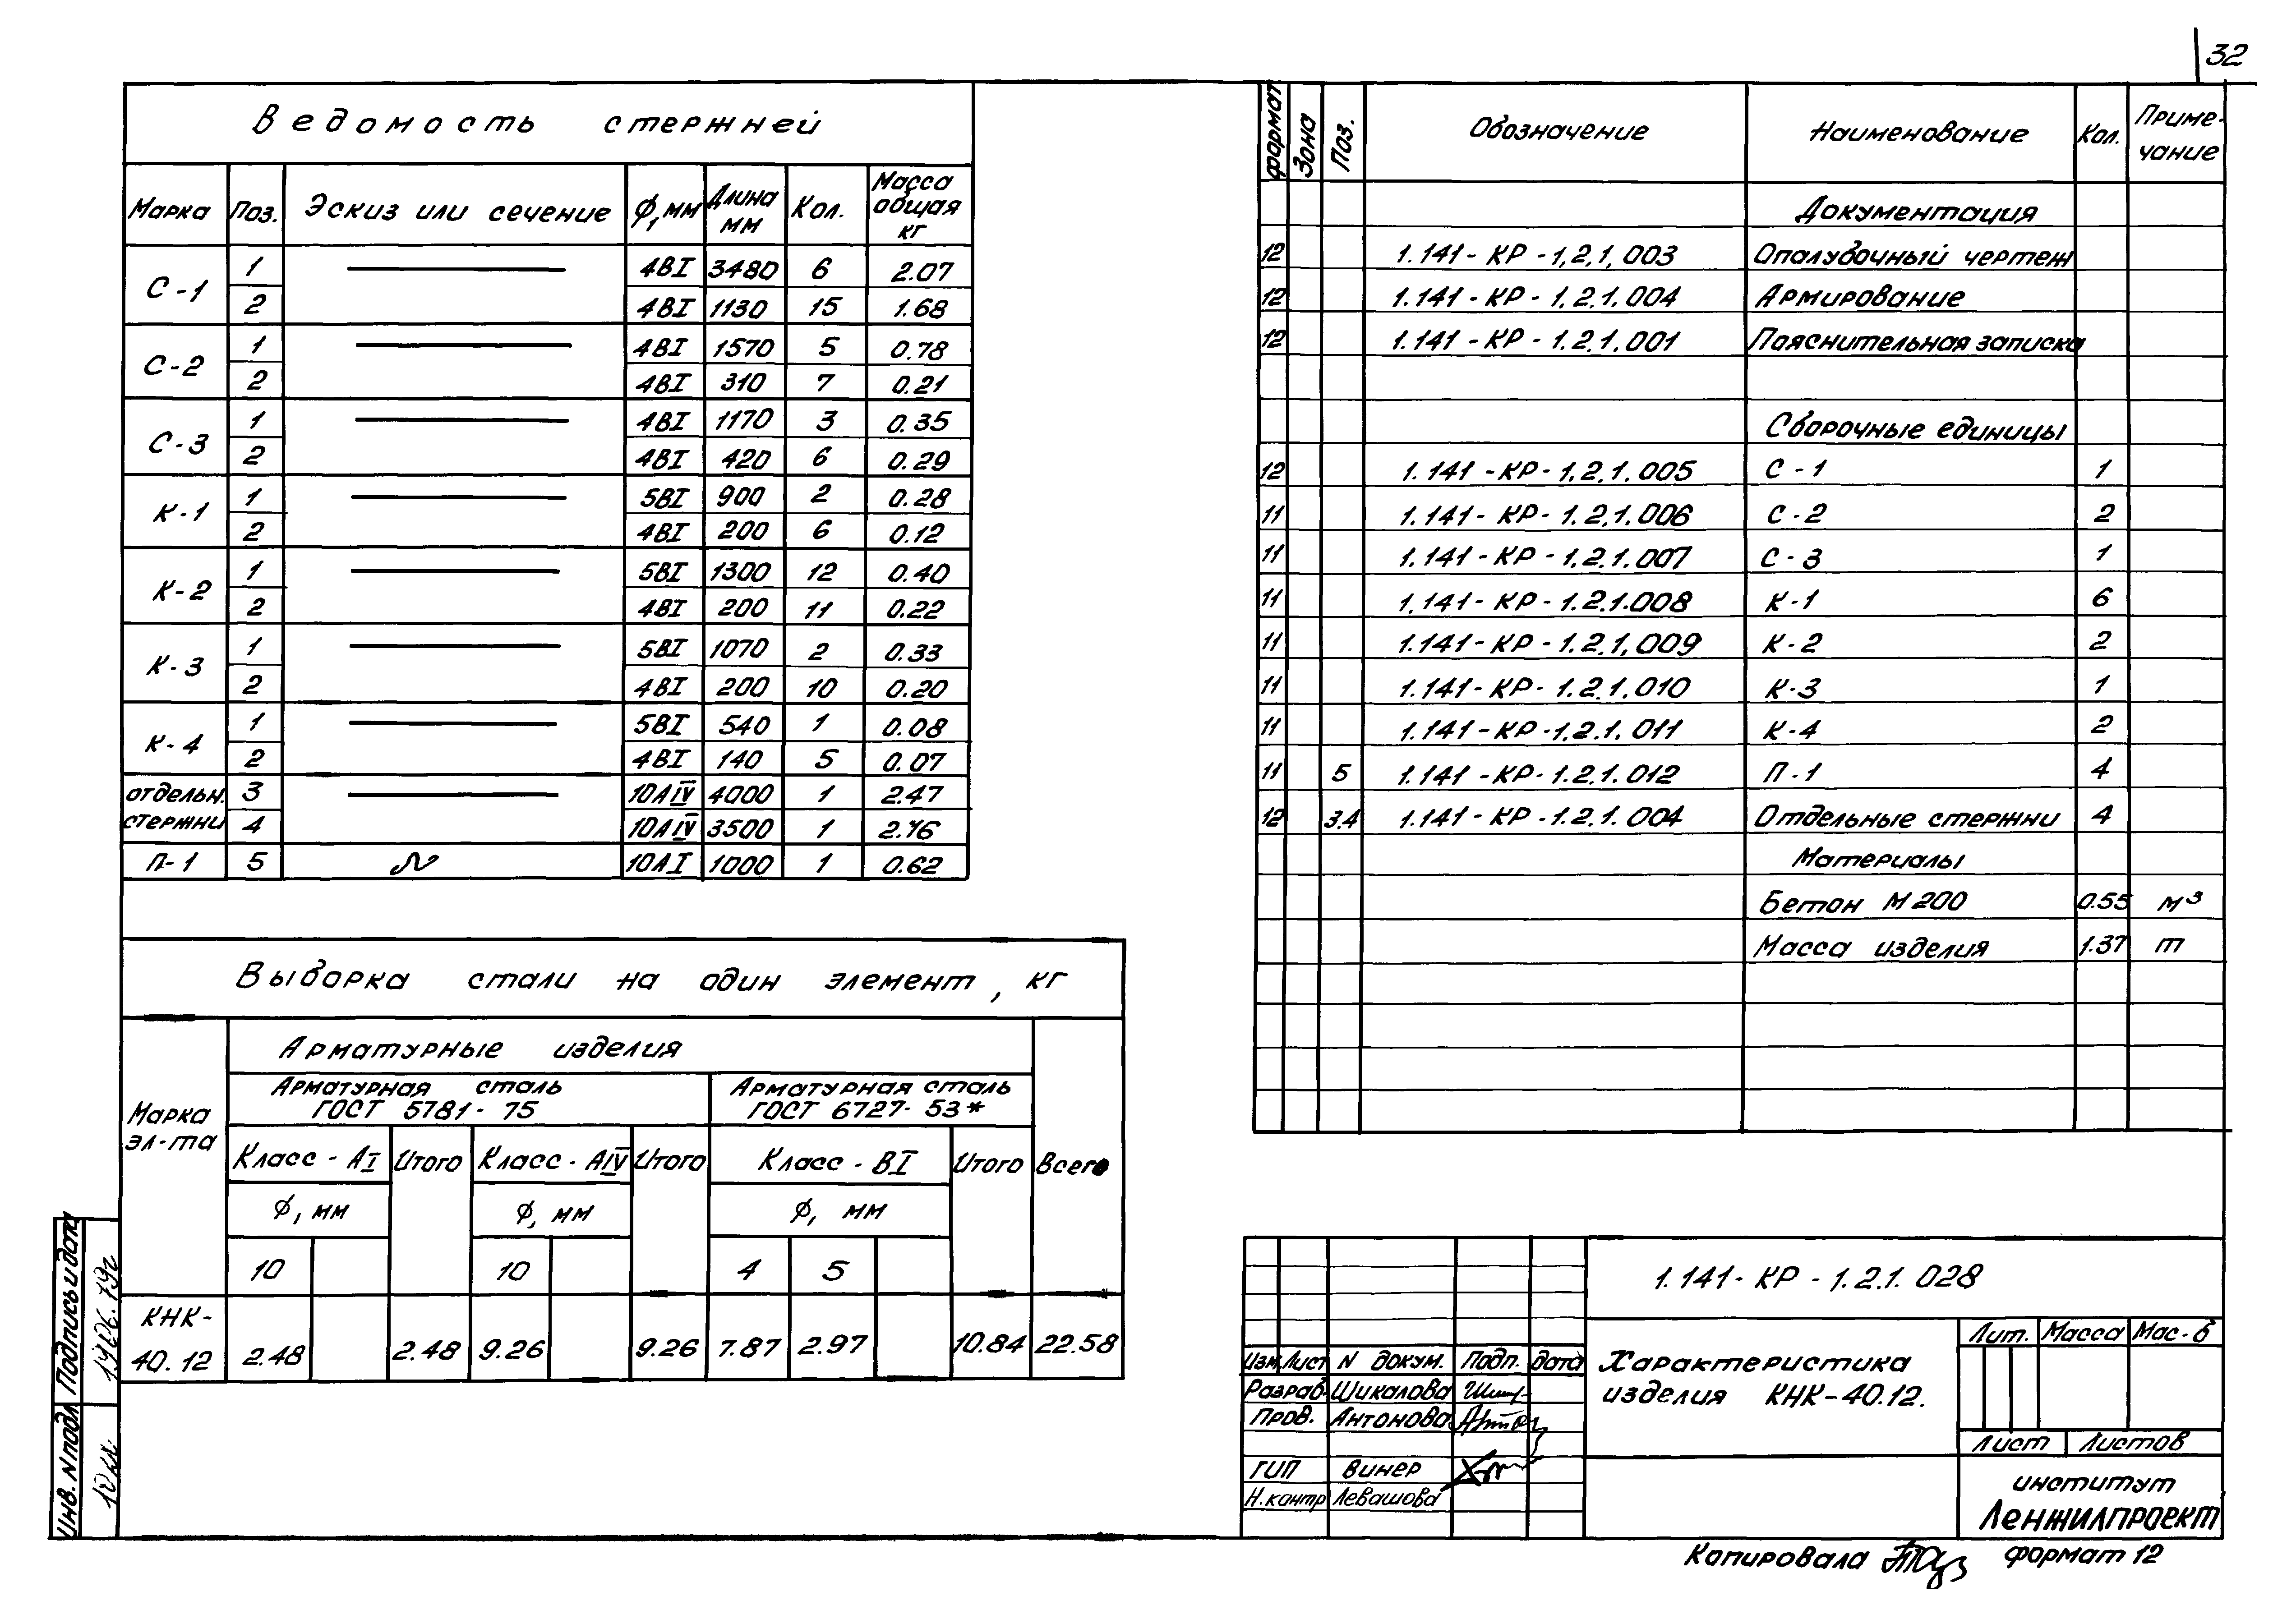 32
Ведомость стержней
Марка Поз. Эскиз или сечение ϕ, мм Длина мм Кол. Масса общая кг
С-1 1 4ВI 3480 6 2.07
2 4ВI 1130 15 1.68
С-2 1 4ВI 1570 5 0.78
2 4ВI 310 7 0.21
С-3 1 4ВI 1170 3 0.35
2 4ВI 420 6 0.29
К-1 1 5ВI 900 2 0.28
2 4ВI 200 6 0.12
К-2 1 5ВI 1300 12 0.40
2 4ВI 200 11 0.22
К-3 1 5ВI 1070 2 0.33
2 4ВI 200 10 0.20
К-4 1 5ВI 540 1 0.08
2 4ВI 140 5 0.07
отдельн. 3 10АIV 4000 1 2.47
стержни 4 10АIV 3500 1 2.16
П-1 5 10АI 1000 1 0.62
Выборка стали на один элемент, кг
Марка эл-та
Арматурные изделия
Арматурная сталь ГОСТ 5781-75
Арматурная сталь ГОСТ 6727-53*
Класс-АI Итого Класс-АIV Итого Класс-ВI Итого Всего
ϕ, мм ϕ, мм ϕ, мм
10 10 4 5
КНК-
40.12 2.48 2.48 9.26 9.26 7.87 2.97 10.84 22.58
формат Зона Поз. Обозначение Наименование Кол. Приме-
чание
Документация
12 1.141-КР-1.2.1.003 Опалубочный чертеж
12 1.141-КР-1.2.1.004 Армирование
12 1.141-КР-1.2.1.001 Пояснительная записка
Сборочные единицы
12 1.141-КР-1.2.1.005 С-1 1
11 1.141-КР-1.2.1.006 С-2 2
11 1.141-КР-1.2.1.007 С-3 1
11 1.141-КР-1.2.1.008 К-1 6
11 1.141-КР-1.2.1.009 К-2 2
11 1.141-КР-1.2.1.010 К-3 1
11 1.141-КР-1.2.1.011 К-4 2
11 5 1.141-КР-1.2.1.012 П-1 4
12 3.4 1.141-КР-1.2.1.004 Отдельные стержни 4
Материалы
Бетон М200 0.55 м³
Масса изделия 1.37 т
1.141-КР-1.2.1.028
Изм. Лист N докум. Подп. Дата
Разраб. Шикалова
Пров. Антонова
ГИП Винер
Н.контр Левашова
Характеристика
изделия КНК-40.12.
Лит. Масса Мас-б
Лист Листов
институт
Ленжилпроект
Копировала формат 12
Инв. N подл Подпись и дата